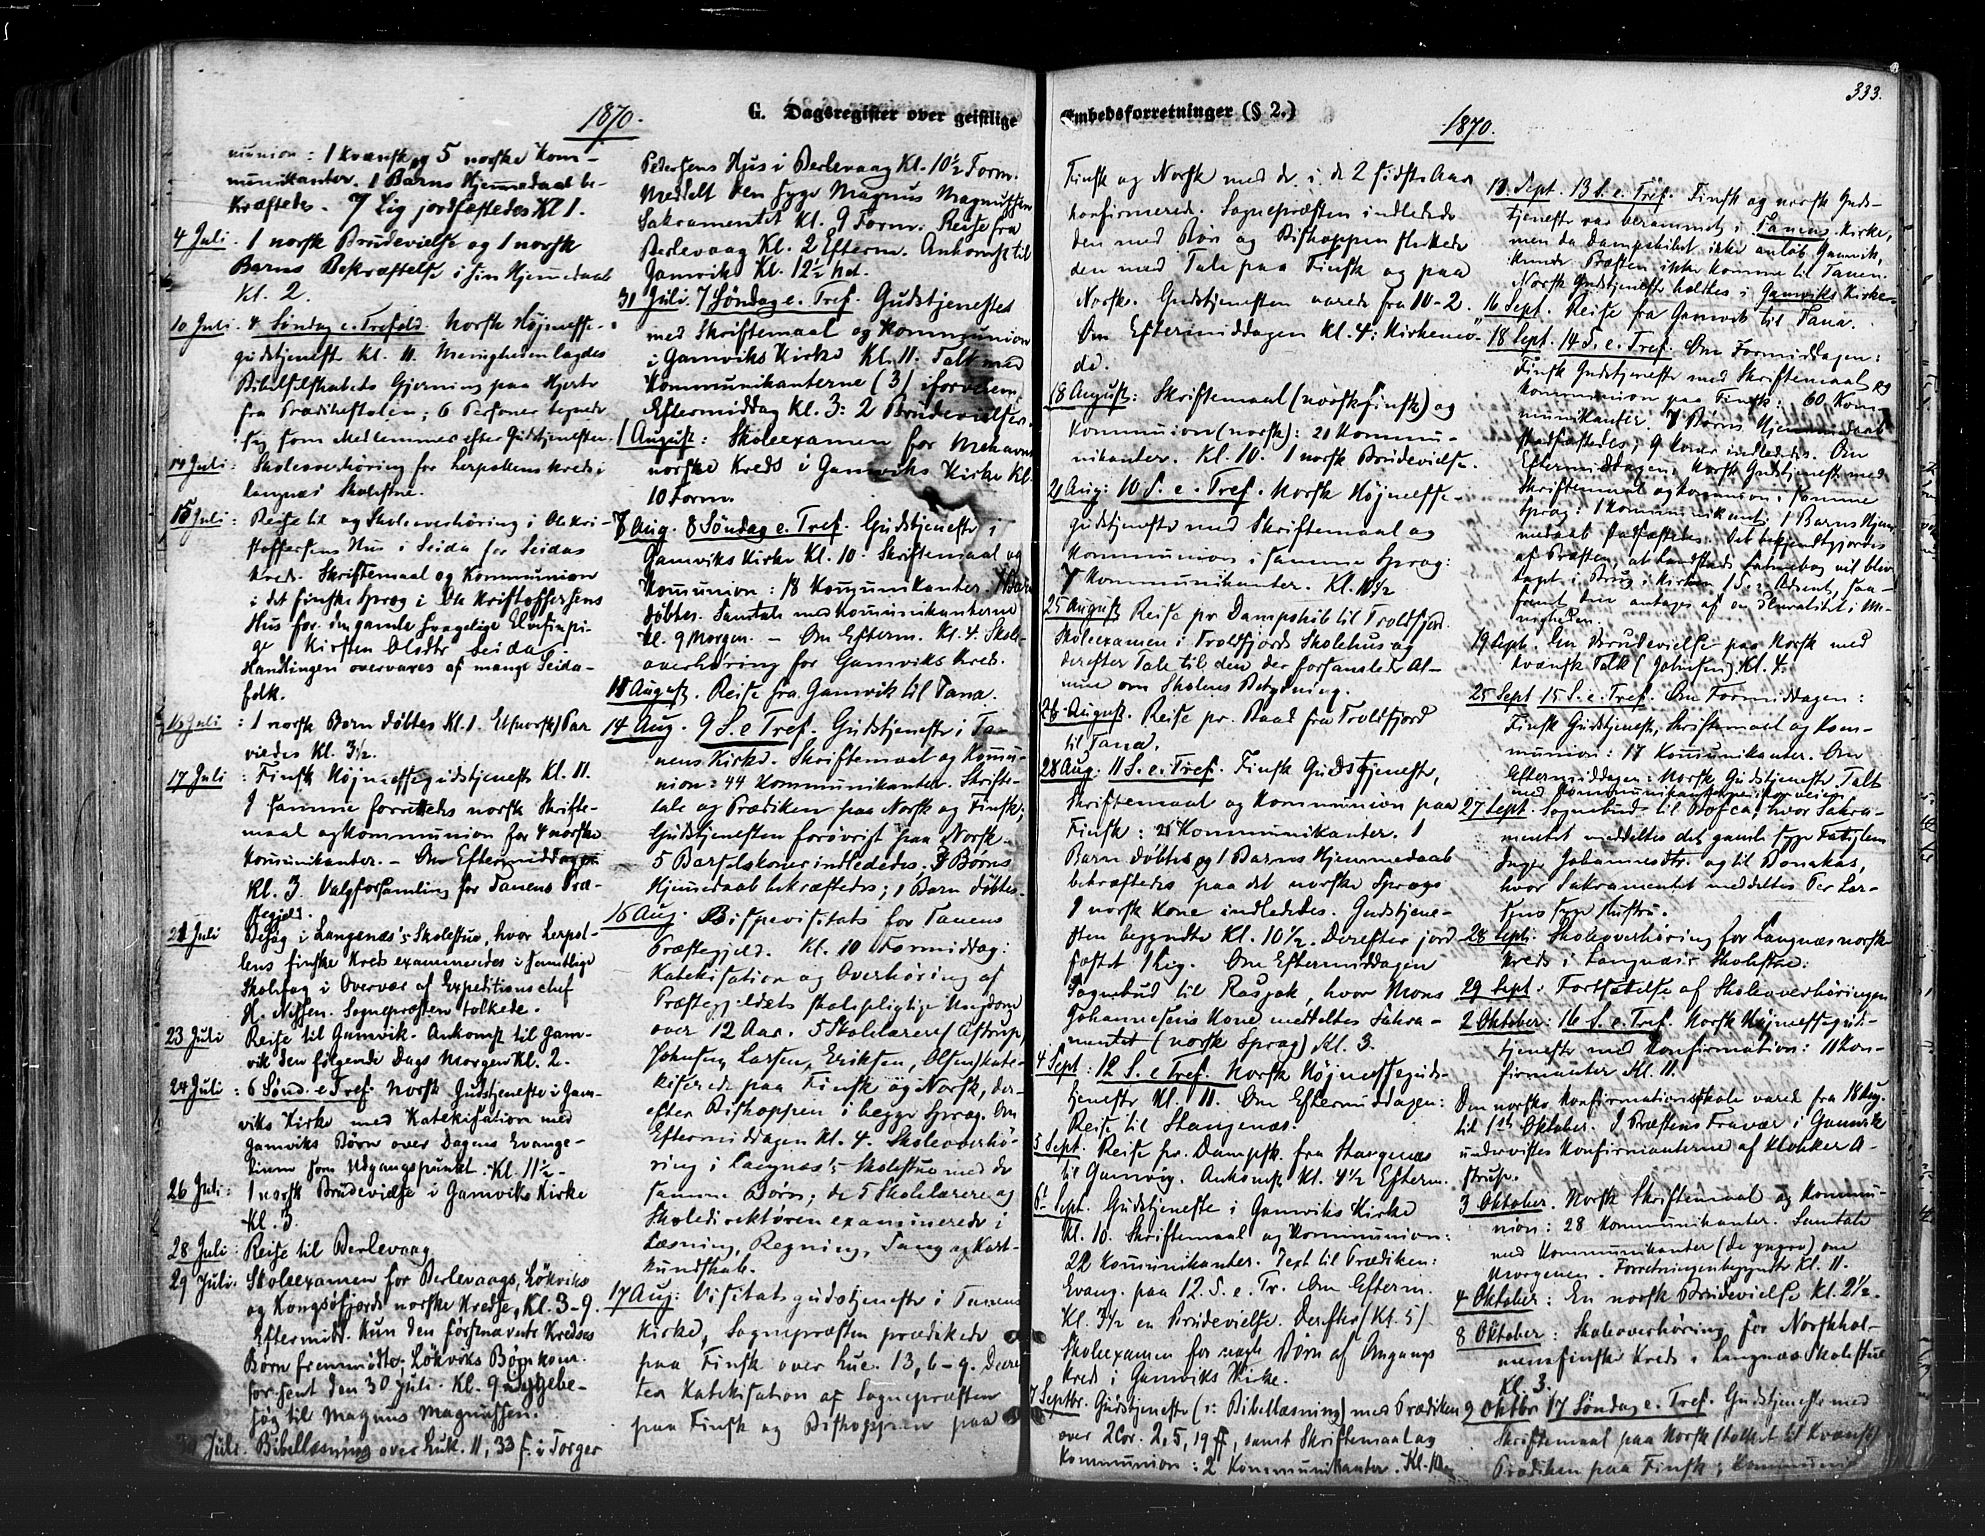 333.
G. Dagsregister over geistlige
Embedsforretninger (§ 2.)
1870.
munion: 1 kvænsk og 5 norske Kom-
munikanter. 1 Barns Hjemmedaab be-
kræftedes. 7 Lig jordfæstedes Kl 1.
4 Juli. 1 norsk Brudevielse og 1 norsk
Barns Bekræftelse i sin Hjemmedaab
Kl. 2.
10 Juli. 4 Søndag e. Trefold. Norsk Højmesse-
gudstjeneste Kl. 11. Menigheden lagdes
Bibelselskabets Gjerning paa Hjerte
fra Prædikestolen; 6 Personer tegnede
sig som Medlemmer efter Gudstjenesten.
14 Juli: Skoleoverhøring for Lerpollens Kreds i
Langnæs Skolestue.
15 Juli: Reise til og Skoleoverhøring i Ole Kri-
stoffersens Hus i Seida for Seidas
Kreds. Skriftemaal og Kommunion
i det finske Sprog i Ole Kristoffersens
Hus for den gamle svagelige Elvefinpi-
ge Kirsten Olsdtr Seida
Handlingen overvares af mange Seida-
folk.
16 Juli: 1 norsk Barn døbtes Kl. 1. Et norsk Par
viedes Kl. 3½.
17 Juli: Finsk Højmessegudstjeneste Kl. 11.
I samme forrettedes norsk Skrifte-
maal og Kommunion for 4 norske
Kommunikanter. – Om Eftermiddagen
Kl. 3 Valgforsamling for Tanens Præ-
stegjæld.
21 Juli Besøg i Langenæs's Skolestue, hvor Lerpol-
lens finske Kreds examineredes i samtlige
Skolefag i Overvær af Expeditionschef
H. Nissen. Sognepræsten tolkede.
23 Juli Reise til Gamvik. Ankomst til Gam-
vik den følgende Dags Morgen Kl. 2.
24 Juli: 6 Sønd. e Tref. Norsk Gudstjeneste i Gam-
viks Kirke med Katekisation med
Gamviks Børn over Dagens Evange-
lium som Udgangspunkt. Kl. 11½.
26 Juli: 1 norsk Brudevielse i Gamviks Kirke
Kl. 3.
28 Juli: Reise til Berlevaag
29 Juli. Skoleexamen for Berlevaags, Løkviks
og Kongsøfjords norske Kredse, Kl. 3-9.
Eftermidd. Kun den førstnævnte Kredses
Børn fremmødte; Løkviks Børn kom
for sent den 30 Juli. Kl. 9 Sygebe-
søg til Magnus Magnussen.
30 Juli. Bibellæsning over Luk. 11, 33 f. i Torger
Pedersens Hus i Berlevaag Kl. 10½ Form.
Meddelt den syge Magnus Magnussen
Sakramentet Kl. 9 Form. Reise fra
Berlevaag Kl. 2 Efterm. Ankomst til
Gamvik Kl. 12½ Nat.
31 Juli. 7 Søndag e. Tref. Gudstjeneste
med Skriftemaal og Kommunion
i Gamviks Kirke Kl. 11. Talt med
Kommunikanterne (3) i forveien,
Eftermiddag Kl. 3: 2 Brudevielser.
1 August: Skoleexamen for Mehavns
norske Kreds i Gamviks Kirke Kl.
10 Form.
7 Aug. 8 Søndag e. Tref. Gudstjeneste i
Gamviks Kirke Kl. 10. Skriftemaal og
Kommunion: 18 Kommunikanter. 1 Barn
døbtes. Samtale med Kommunikanterne
Kl. 9 Morgen. – Om Efterm. Kl. 4. Skole-
overhøring for Gamviks Kreds.
11 August. Reise fra Gamvik til Tana.
14 Aug. 9 S. e Tref. Gudstjeneste i Ta-
nens Kirke. Skriftemaal og Kommu-
nion: 44 Kommunikanter. Skrifte-
tale og Prædiken paa Norsk og Finsk;
Gudstjenesten forøvrigt paa Norsk.
5 Barselskoner indlededes. 3 Børns
Hjemmedaab bekræftedes; 1 Barn døbtes.
16 Aug. Bispevisitats for Tanens
Præstegjeld. Kl. 10 Formiddag:
Katekisation og Overhøring af
Præstegjeldets skolepligtige Ungdom
over 12 Aar. 5 Skolelærere (Astrup,
Johnsen, Larsen, Eriksen, Olsen) kate-
kiserede paa Finsk og Norsk, der-
efter Bishoppen i begge Sprog. Om
Eftermiddagen Kl. 4. Skoleoverhø-
ring i Langnæs's Skolestue med de
samme Børn; de 5 Skolelærere og
Skoledirektøren examinerede i
Læsning, Regning, Sang og Kort-
kundskab.
17 Aug: Visitatsgudstjeneste i Tanens
Kirke, Sognepræsten prædikede
paa Finsk over Luc. 13, 6-9. Deref-
ter Katekisation af Sognepræsten
paa Finsk og Bishoppen paa
1870.
Finsk og Norsk med de i de 2 sidste Aar
konfirmerede. Sognepræsten indledede
den med Bøn og Bishoppen sluttede
den med Tale paa Finsk og paa
Norsk. Gudstjenesten varede fra 10-2.
Om Eftermiddagen Kl. 4: Kirkemø-
de.
18 August: Skriftemaal (norsk finsk) og
Kommunion (norsk): 21 Kommu-
nikanter. Kl. 10. 1 norsk Brudevielse.
21 Aug: 10 S. e. Tref. Norsk Højmesse-
gudstjeneste med Skriftemaal og
Kommunion i samme Sprog:
7 Kommunikanter. Kl. 10½
25 August Reise pr Dampskib til Troldfjord.
Skoleexamen i Troldfjords Skolehus og
derefter Tale til den der forsamlede Al-
mue om Skolens Betydning.
26 August. Reise pr. Baad fra Troldfjord
til Tana.
28 Aug. 11 S. e. Tref. Finsk Gudstjeneste,
Skriftemaal og Kommunion paa
Finsk: 21 Kommunikanter. 1
Barn døbtes og 1 Barns Hjemmedaab
bekræftedes paa det norske Sprog.
1 norsk Kone indlededes. Gudstjene-
sten begyndte Kl. 10½. Derefter jord
fæstet 1 Lig. Om Eftermiddagen
Sognebud til Rasjok, hvor Mons
Johannesens Kone meddeltes Sakra-
mentet (norsk Sprog) Kl. 3.
4 Sept: 12 S. e Tref. Norsk Højmesseguds-
tjeneste Kl. 11. Om Eftermiddagen:
Reise til Stangenæs.
5 Sept. Reise pr. Dampsk. fra Stangenæs
til Gamvig. Ankomst Kl. 4½ Efterm.
6 Sept. Gudstjeneste i Gamviks Kirke
Kl. 10. Skriftemaal og Kommunion:
22 Kommunikanter. Text til Prædiken:
Evang. paa 12. S. e. Tr. Om Efterm.
Kl. 3½ en Brudevielse. Derefter (Kl. 5)
Skoleexamen for nogle Børn af Omgangs
Kreds i Gamviks Kirke.
7 Septbr. Gudstjeneste (ɔ: Bibellæsning) med Prædiken
over 2 Cor. 2, 5, 19 ff, samt Skriftemaal og
Kommunion: 2 Kommunikanter. Kl. 10
11 Sept. 13 S. e. Tref. Finsk og norsk Guds-
tjeneste var berammet i Tanens Kirke,
men da Dampskibet ikke anløb Gamvik,
kunde Præsten ikke komme til Tanen.
Norsk Gudstjeneste holdtes i Gamviks Kirke.
16 Sept. Reise fra Gamvik til Tana.
18 Sept. 14 S. e. Tref. Om Formiddagen:
Finsk Gudstjeneste med Skriftemaal og
Kommunion paa Finsk: 60 Kom-
munikanter. 7 Børns Hjemmedaab
stadfæstedes; 9 Koner indlededes. Om
Eftermiddagen: Norsk Gudstjeneste med
Skriftemaal og Kommunion i samme
Sprog: 1 Kommunikant. 1 Barns Hjem-
medaab stadfæstedes. Det bekjendtgjordes
af Præsten, at Landstads Salmebog vil blive
taget i Brug i Kirken 1 S. i Advent, saa-
fremt den antages af en Pluralitet i Me-
nigheden.
19 Sept. En Brudevielse paa Norsk med
kvænsk Tolk (Johnsen) Kl. 4.
25 Sept 15 S. e. Tref. Om Formiddagen:
Finsk Gudstjeneste, Skriftemaal og Kom-
munion: 17 Kommunikanter. Om
Eftermiddagen: Norsk Gudstjeneste Talt
med Kommunikanterne i forveien.
27 Sept. Sognebud til Bofca, hvor Sakra-
mentet meddeltes det gamle syge Fattiglem
Inger Johannesdtr. og til Bonakas,
hvor Sakramentet meddeltes Per Lar-
sens syge Hustru.
28 Sept: Skoleoverhøring for Langnæs norske
Kreds i Langnæs Skolestue.
29 Sept: Fortsættelse af Skoleoverhøringen
2 Oktober: 16 S. e. Tref. Norsk Højmessegud-
tjeneste med Konfirmation: 11 Kon-
firmanter Kl. 11.
Den norske Konfirmationsskole varede fra 18 Aug.
til 1ste Oktober. I Præstens Fravær i Gamvik
undervistes Konfirmanterne af Klokker A-
strup.
3 Oktober. Norsk Skriftemaal og Kommu-
nion: 28 Kommunikanter. Samtale
med Kommunikanter (de yngre) om
Morgenen. Forretningen begyndte Kl. 11.
4 Oktober: En norsk Brudevielse Kl. 2½.
8 Oktober: Skoleoverhøring for Norskhol-
mens finske Kreds i Langnæs Skolestue
Kl. 3.
9 Oktbr. 17 Søndag e. Tref. Gudstjeneste med
Skriftemaal paa Norsk (tolket til Kvænsk)
Prædiken paa Finsk; Kommunion